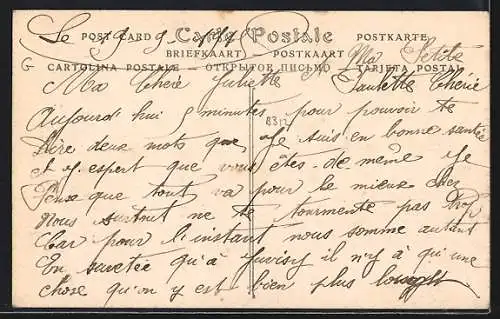 Le 9 9
POST CARD Carte Postale POSTKARTE
BRIEFKAART POSTKAART Ma Petite
G CARTOLINA POSTALE — ОТКРЫТОЕ ПИСЬМО — TARJETA POSTAL
Ma Cherè Juliette Paulette Cherie
Aujourd'hui 5 minutes pour pouvoir te
8312
Lire deux mots que Je suis en bonne santée
et J'espert que vous êtes de même Je
Peux que tout va pour le mieux chez
Nous Surtout ne te tourmente pas
Car pour l'instant nous somme autant
En suretée qu'à Juvisy il n'y à qu'une
chose qu'on y est bien plus